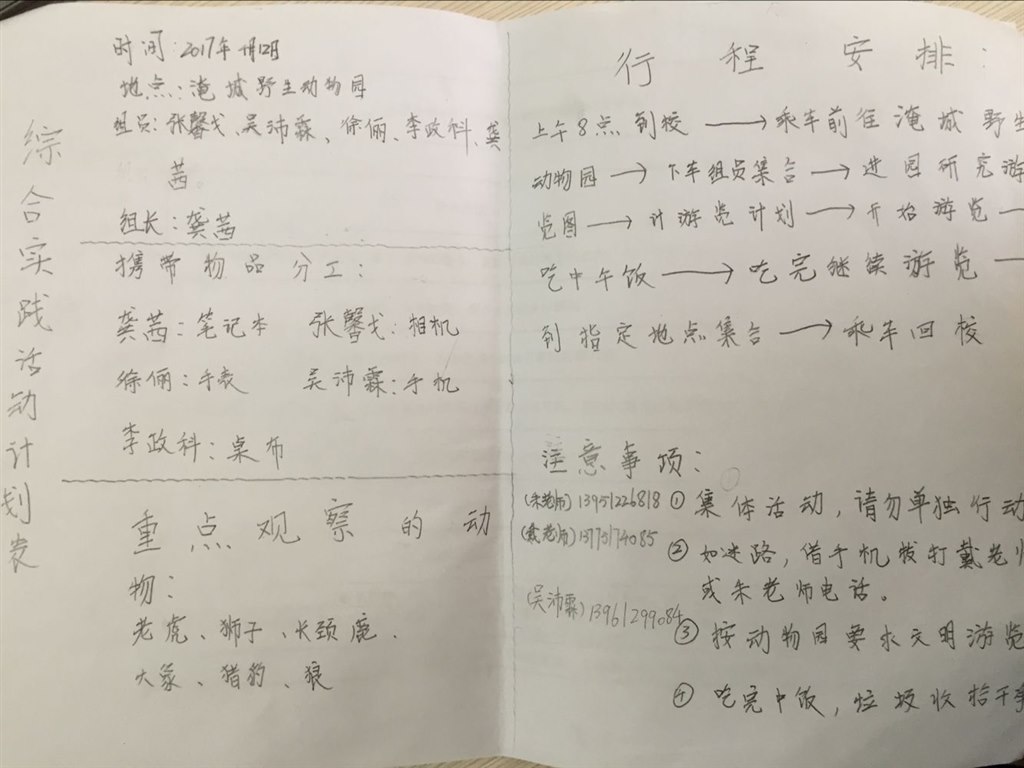 综合实践活动计划表
时间:2017年11月12日
地点:淹城野生动物园
组员:张馨戈、吴沛霖、徐俪、李政科、龚
茜
组长:龚茜
携带物品分工:
龚茜:笔记本 张馨戈:相机
徐俪:手表 吴沛霖:手机
李政科:桌布
重点观察的动
物:
老虎、狮子、长颈鹿、
大象、猎豹、狼
行程安排:
上午8点到校→乘车前往淹城野生
动物园→下车组员集合→进园研究游
览图→计游览计划→开始游览→
吃中午饭→吃完继续游览→
到指定地点集合→乘车回校
注意事项:
(朱老师)13951226818
(戴老师)13775174085
(吴沛霖)13961299084
①集体活动,请勿单独行动
②如迷路,借手机拨打戴老师
或朱老师电话。
③按动物园要求文明游览
④吃完中饭,垃圾收拾干净